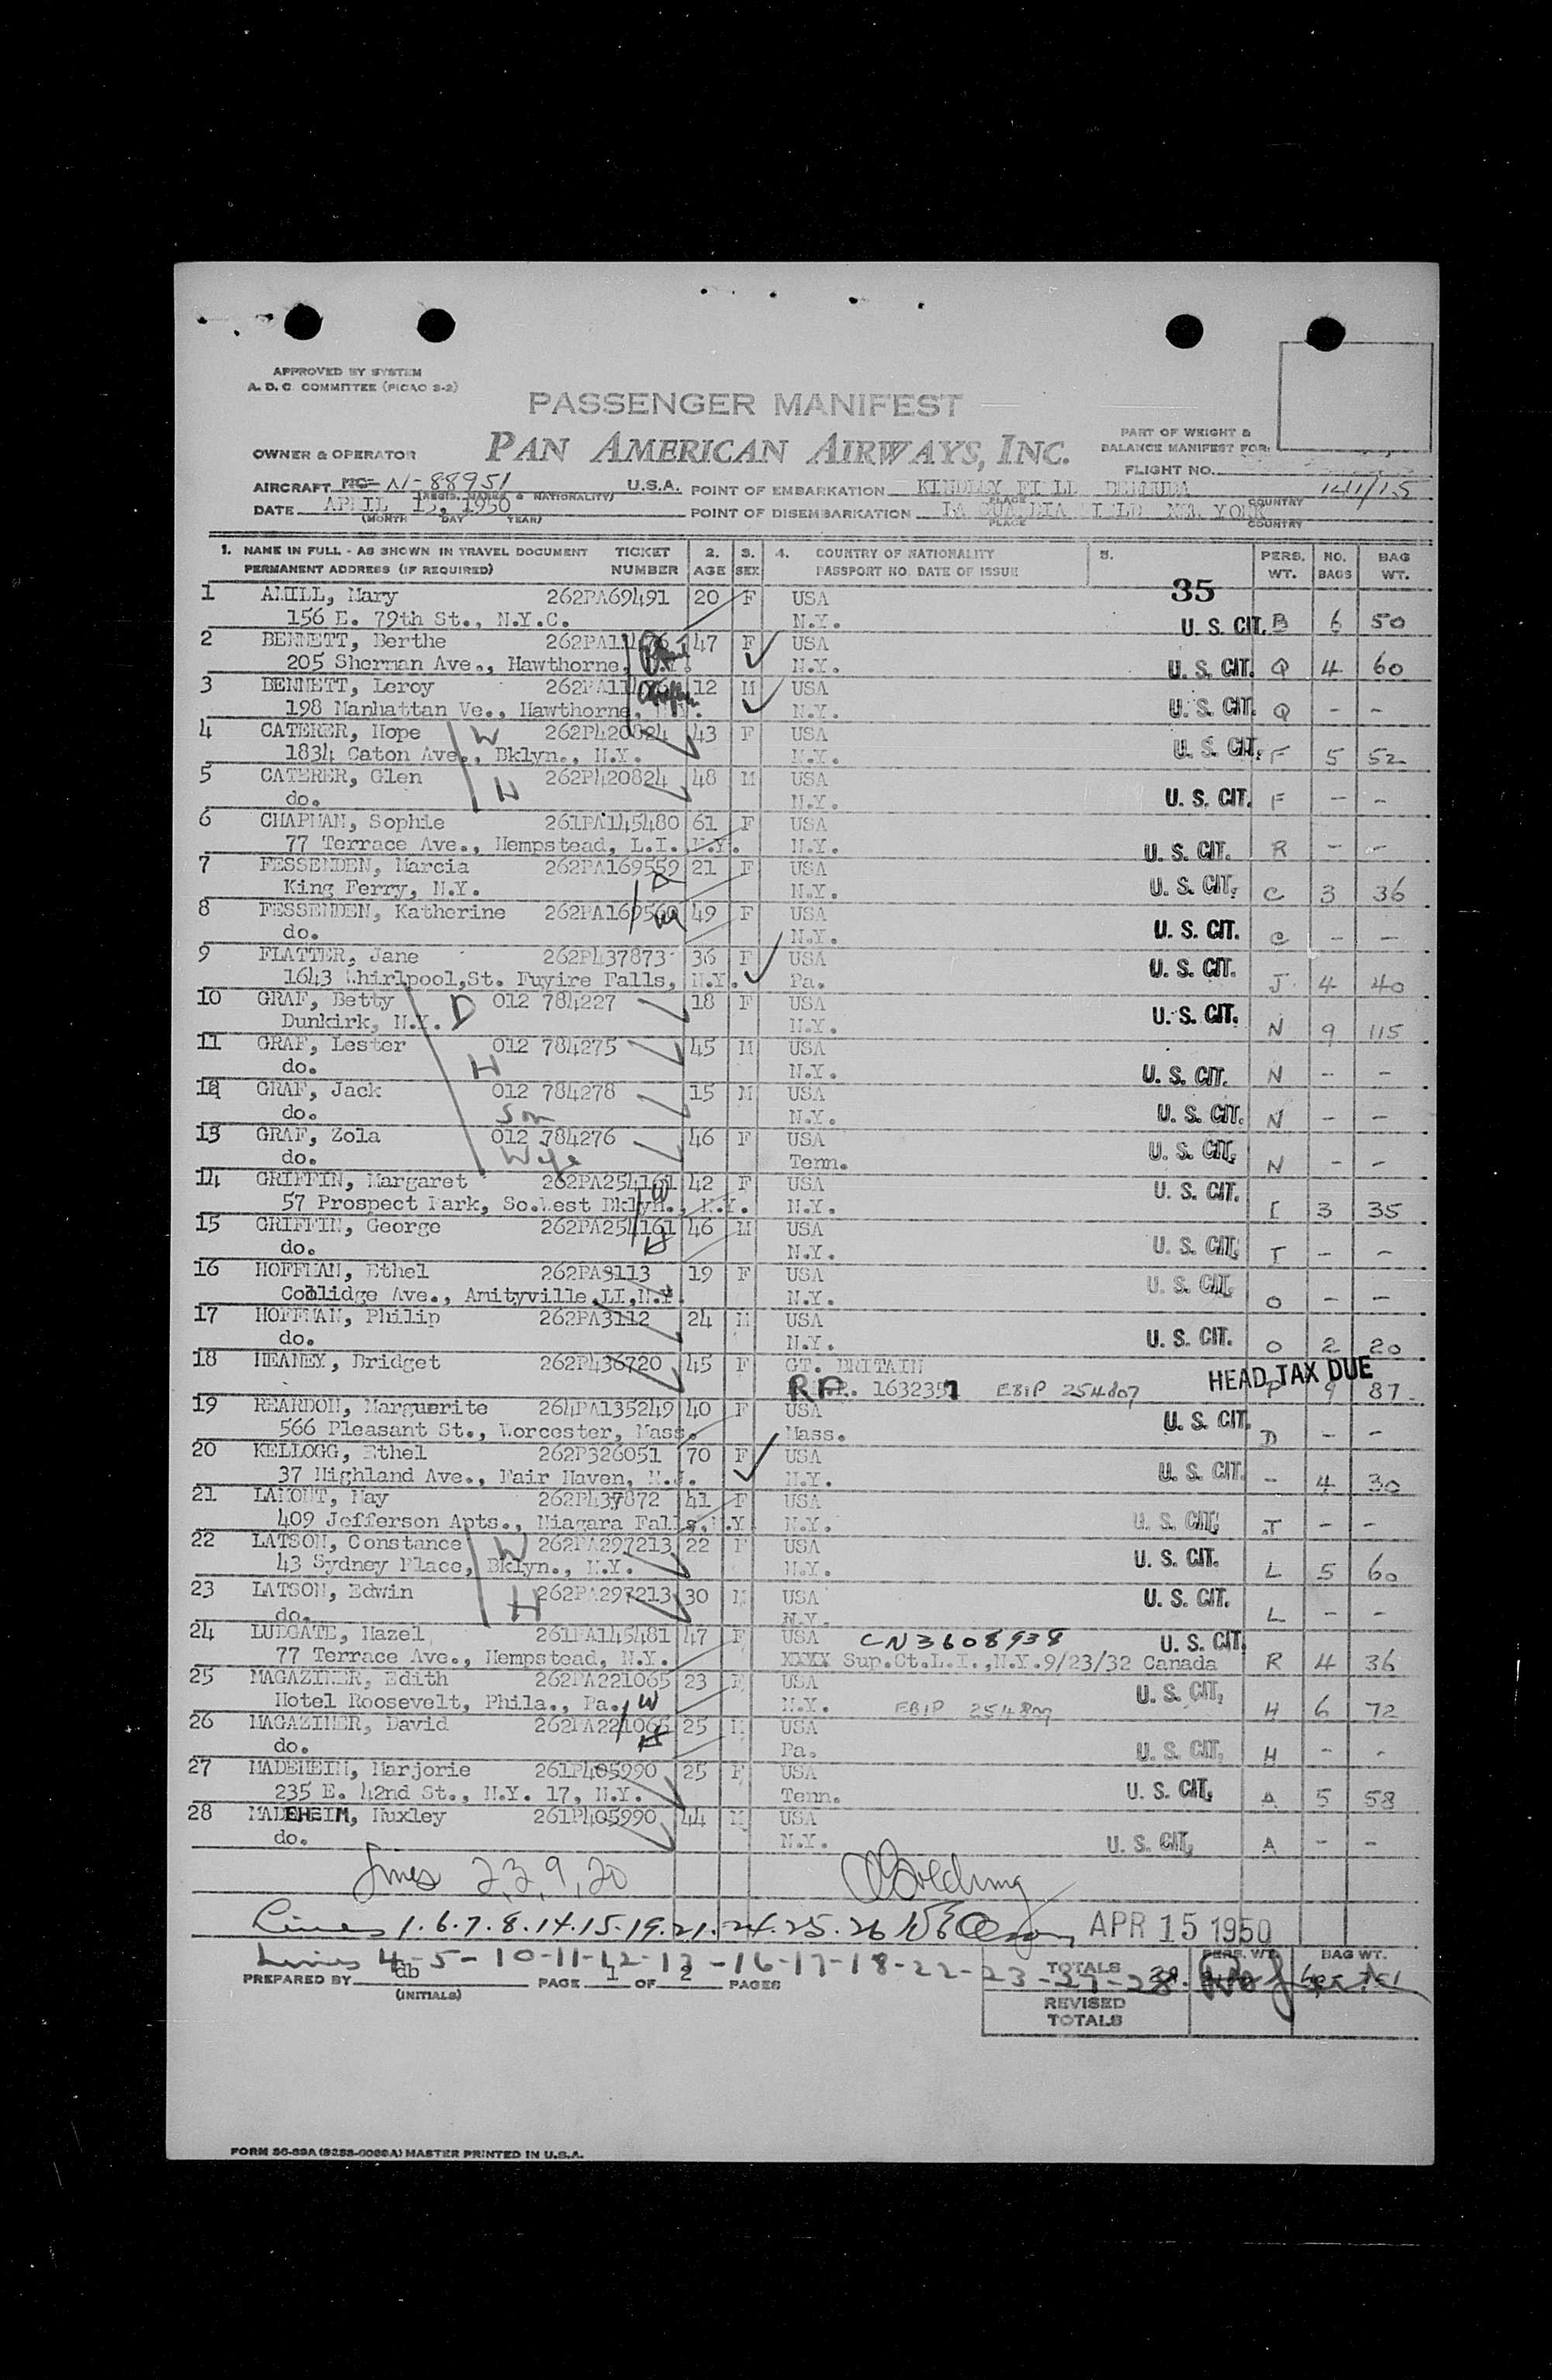 APPROVED BY SYSTEM
A. D. C. COMMITTEE (PICAO S-2)
PASSENGER MANIFEST
PAN AMERICAN AIRWAYS, INC.
PART OF WEIGHT &
BALANCE MANIFEST FOR:
OWNER & OPERATOR
FLIGHT NO.
AIRCRAFT N-88951 U.S.A. POINT OF EMBARKATION KINDLEY FIELD BERMUDA 1411/15
(REGIS. MARKS & NATIONALITY) PLACE COUNTRY
DATE APRIL 15, 1950 POINT OF DISEMBARKATION LA GUARDIA FIELD NEW YORK
(MONTH DAY YEAR) PLACE COUNTRY
1. NAME IN FULL - AS SHOWN IN TRAVEL DOCUMENT TICKET 2. 3. 4. COUNTRY OF NATIONALITY 5. PERS. NO. BAG
PERMANENT ADDRESS (IF REQUIRED) NUMBER AGE SEX PASSPORT NO. DATE OF ISSUE WT. BAGS WT.
35
1 AMILL, Mary 262PA69491 20 F USA
156 E. 79th St., N.Y.C. N.Y. U. S. CIT. B 6 50
2 BENNETT, Berthe 47 F USA
205 Sherman Ave., Hawthorne, N.Y. U. S. CIT. Q 4 60
3 BENNETT, Leroy 12 M USA
198 Manhattan Ve., Hawthorne, N.Y. N.Y. U. S. CIT. Q - -
4 CATERER, Hope W 262P420824 43 F USA
1834 Caton Ave., Bklyn., N.Y. N.Y. U. S. CIT. F 5 52
5 CATERER, Glen H 262P420824 48 M USA
do. N.Y. U. S. CIT. F - -
6 CHAPMAN, Sophie 261PA145480 61 F USA
77 Terrace Ave., Hempstead, L.I. N.Y. N.Y. U. S. CIT. R - -
7 FESSENDEN, Marcia 262PA169559 21 F USA
King Ferry, N.Y. D N.Y. U. S. CIT. C 3 36
8 FESSENDEN, Katherine 262PA169560 49 F USA
do. M N.Y. U. S. CIT. C - -
9 FLATTER, Jane 262P437873 36 F USA
1643 Whirlpool,St. Fuyire Falls, N.Y. Pa. U. S. CIT. J 4 40
10 GRAF, Betty D 012 784227 18 F USA
Dunkirk, N.Y. N.Y. U. S. CIT. N 9 115
11 GRAF, Lester 012 784275 45 M USA
do. H N.Y. U. S. CIT. N - -
12 GRAF, Jack 012 784278 15 M USA
do. Son N.Y. U. S. CIT. N - -
13 GRAF, Zola 012 784276 46 F USA
do. Wife Tenn. U. S. CIT. N - -
14 GRIFFIN, Margaret 262PA254161 42 F USA
57 Prospect Park, So.West Bklyn., N.Y. W N.Y. U. S. CIT. I 3 35
15 GRIFFIN, George 262PA254161 46 M USA
do. H N.Y. U. S. CIT. I - -
16 HOFFMAN, Ethel 262PA3113 19 F USA
Coolidge Ave., Amityville,LI,N.Y. N.Y. U. S. CIT. O - -
17 HOFFMAN, Philip 262PA3112 24 M USA
do. N.Y. U. S. CIT. O 2 20
18 HEANEY, Bridget 262P436720 45 F GT. BRITAIN
1632357 EBIP 254807 HEAD TAX DUE P 9 87
19 REARDON, Marguerite 264PA135249 40 F USA
566 Pleasant St., Worcester, Mass. Mass. U. S. CIT. D - -
20 KELLOGG, Ethel 262P326051 70 F USA
37 Highland Ave., Fair Haven, N.J. N.Y. U. S. CIT. - 4 30
21 LAMONT, May 262P437872 41 F USA
409 Jefferson Apts., Niagara Falls,N.Y. N.Y. U. S. CIT. J - -
22 LATSON, Constance W 262PA297213 22 F USA
43 Sydney Place, Bklyn., N.Y. N.Y. U. S. CIT. L 5 60
23 LATSON, Edwin H 262PA297213 30 M USA
do. N.Y. U. S. CIT. L - -
24 LUDGATE, Hazel 261PA145481 47 F USA CN3608938 U. S. CIT.
77 Terrace Ave., Hempstead, N.Y. XXXX Sup.Ct.L.I.,N.Y.9/23/32 Canada R 4 36
25 MAGAZINER, Edith 262PA221065 23 F USA
Hotel Roosevelt, Phila., Pa. W N.Y. EBIP 254807 U. S. CIT. H 6 72
26 MAGAZINER, David 262PA221065 25 M USA
do. H Pa. U. S. CIT. H - -
27 MADEHEIM, Marjorie 261P405990 25 F USA
235 E. 42nd St., N.Y. 17, N.Y. Tenn. U. S. CIT. A 5 58
28 MADEHEIM, Huxley 261P405990 44 M USA
do. N.Y. U. S. CIT. A - -
Lines 2,3,9,20
Lines 1.6.7.8.14.15.19.21.24.25.26 APR 15 1950
Lines 4-5-10-11-12-13-16-17-18-22-23-27-28
PREPARED BY db PAGE 1 OF 2 PAGES
(INITIALS)
TOTALS PERS. WT. BAG WT.
REVISED
TOTALS
FORM 86-89A (9288-6089A) MASTER PRINTED IN U.S.A.